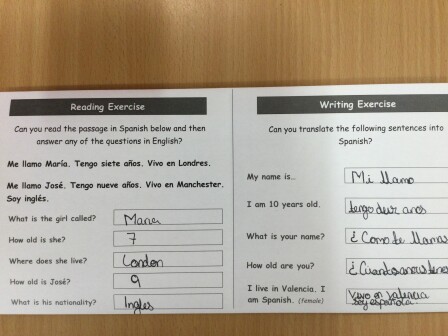 Reading Exercise
Can you read the passage in Spanish below and then
answer any of the questions in English?
Me llamo María. Tengo siete años. Vivo en Londres.
Me llamo José. Tengo nueve años. Vivo en Manchester.
Soy inglés.
What is the girl called? Maria
How old is she? 7
Where does she live? London
How old is José? 9
What is his nationality? Ingles
Writing Exercise
Can you translate the following sentences into
Spanish?
My name is.. Mi llamo
I am 10 years old. tengo anos
What is your name? ¿ Como te llamas
How old are you? ¿ Cuantos anos
I live in Valencia. I Vivo en valencia
am Spanish. (female) soy española